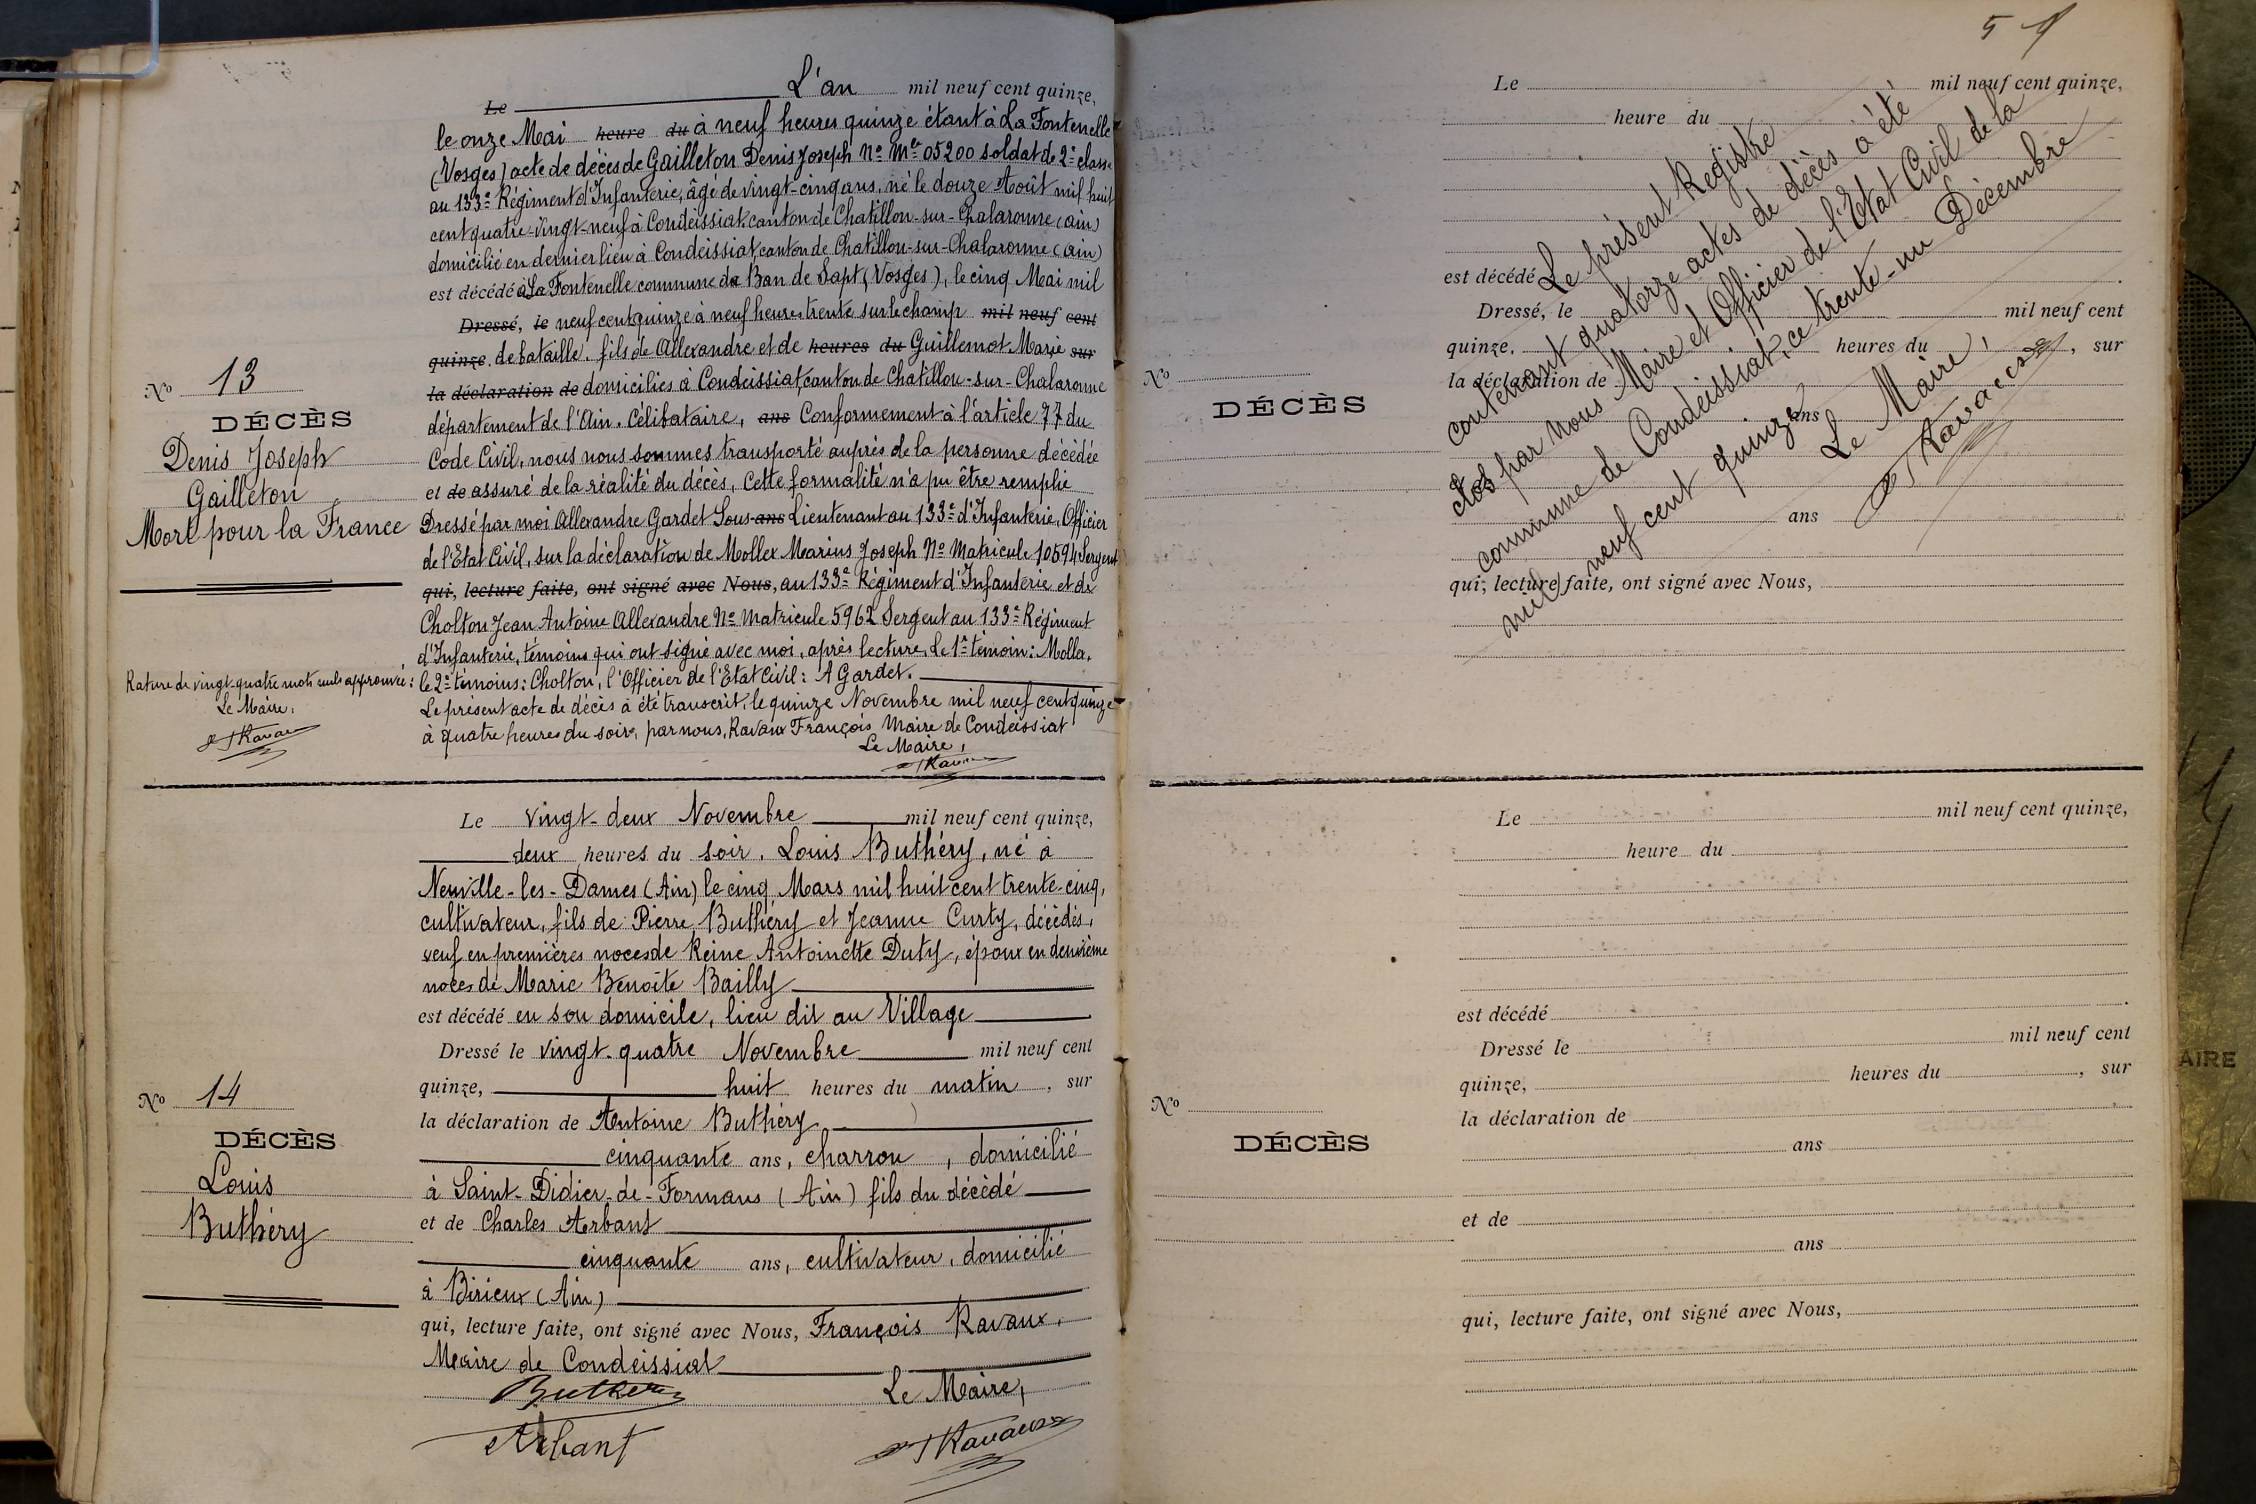 Le L'an mil neuf cent quinze,
le onze Mai heure du à neuf heures quinze étant à La Fontenelle
(Vosges) acte de décès de Gailleton Denis Joseph No Mle 05200 soldat de 2e classe
au 133e Régiment d'Infanterie, âgé de vingt-cinq ans, né le douze Août mil huit
cent quatre-vingt-neuf à Condeissiat, canton de Chatillon-sur-Chalaronne (Ain)
domicilié en dernier lieu à Condeissiat, canton de Chatillon-sur-Chalaronne (Ain)
est décédé à La Fontenelle commune de Ban de Sapt (Vosges), le cinq Mai mil
Dressé, le neuf cent quinze à neuf heures trente sur le champ mil neuf cent
quinze, de bataille, fils de Allexandre et de heures du Guillemot Marie sur
la déclaration de domiciliés à Condeissiat, canton de Chatillon-sur-Chalaronne
département de l'Ain. Célibataire, ans Conformement à l'article 77 du
Code Civil, nous nous sommes transporté auprès de la personne décédée
et de assuré de la réalité du décès, Cette formalité n'a pu être remplie
Dressé par moi Allexandre Gardet Sous-ans Lieutenant au 133e d'Infanterie, Officier
de l'Etat Civil, sur la déclaration de Mollex Marius Joseph No Matricule 10594 Sergent
qui, lecture faite, ont signé avec Nous, au 133e Régiment d'Infanterie et de
Cholton Jean Antoine Allexandre No Matricule 5962 Sergent au 133e Régiment
d'Infanterie, témoins qui ont signé avec moi, après lecture, Le 1er témoin: Mollex,
le 2e témoins: Cholton, l'Officier de l'Etat Civil: A Gardet.
Le présent acte de décès à été transcrit, le quinze Novembre mil neuf cent quinze
à quatre heures du soir, par nous, Ravaux François Maire de Condeissiat
Le Maire,
Ravaux
No 13
DÉCÈS
Denis Joseph
Gailleton
Mort pour la France
Rature de vingt quatre mots nuls approuvée:
Le Maire,
Ravaux
Le vingt-deux Novembre mil neuf cent quinze,
deux heures du soir, Louis Buthéry, né à
Neuville-les-Dames (Ain) le cinq Mars mil huit cent trente-cinq,
cultivateur, fils de Pierre Buthéry et Jeanne Curty, décédés,
veuf en premières noces de Reine Antoinette Duty, époux en deuxième
noces de Marie Benoîte Bailly
est décédé en son domicile, lieu dit au Village
Dressé le vingt-quatre Novembre mil neuf cent
quinze, huit heures du matin, sur
la déclaration de Antoine Buthéry
cinquante ans, charron, domicilié
à Saint-Didier-de-Formans (Ain) fils du décédé
et de Charles Arbant
cinquante ans, cultivateur, domicilié
à Birieux (Ain)
qui, lecture faite, ont signé avec Nous, François Ravaux,
Maire de Condeissiat
Buthery
Le Maire,
Arbant
Ravaux
No 14
DÉCÈS
Louis
Buthéry
5
Le mil neuf cent quinze,
heure du
est décédé
Dressé, le mil neuf cent
quinze, heures du , sur
la déclaration de
ans
ans
qui, lecture faite, ont signé avec Nous,
Le présent Registre
contenant quatorze actes de décès à été
clos par nous Maire et Officier de l'Etat Civil de la
commune de Condeissiat, ce trente-un Décembre
mil neuf cent quinze
Le Maire,
Ravaux
No
DÉCÈS
Le mil neuf cent quinze,
heure du
est décédé
Dressé le mil neuf cent
quinze, heures du , sur
la déclaration de
ans
et de
ans
qui, lecture faite, ont signé avec Nous,
No
DÉCÈS
AIRE